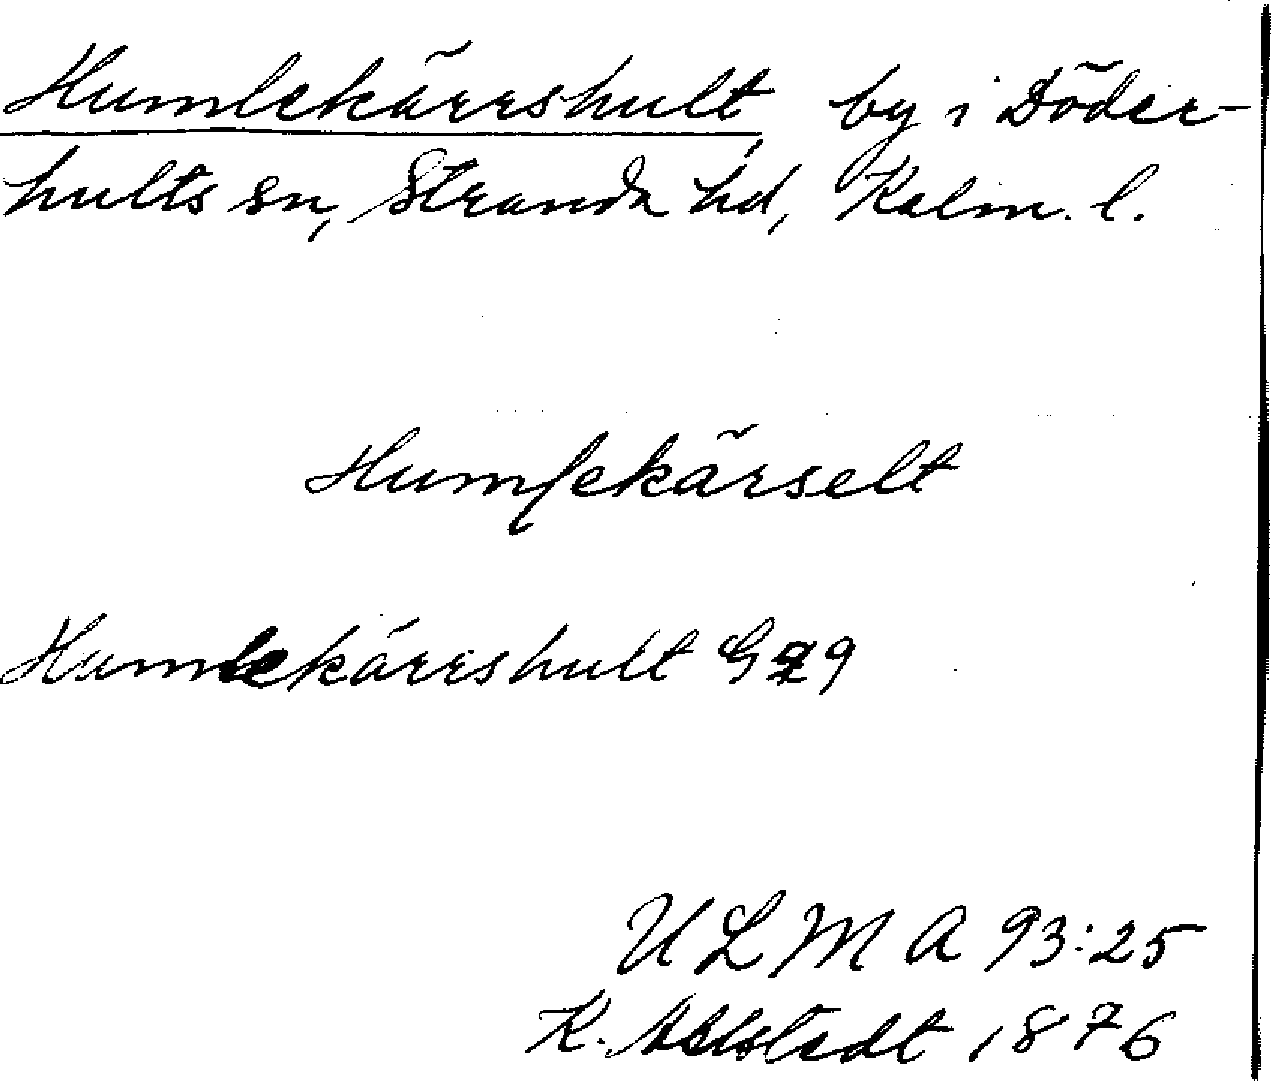 Humlekärrshult, by i Döder-
hults sn, Stranda hd, Kalm. l.
Humlekärselt
Humlekärrshult G 29
ULMA 93:25
K. Ahlstedt 1876